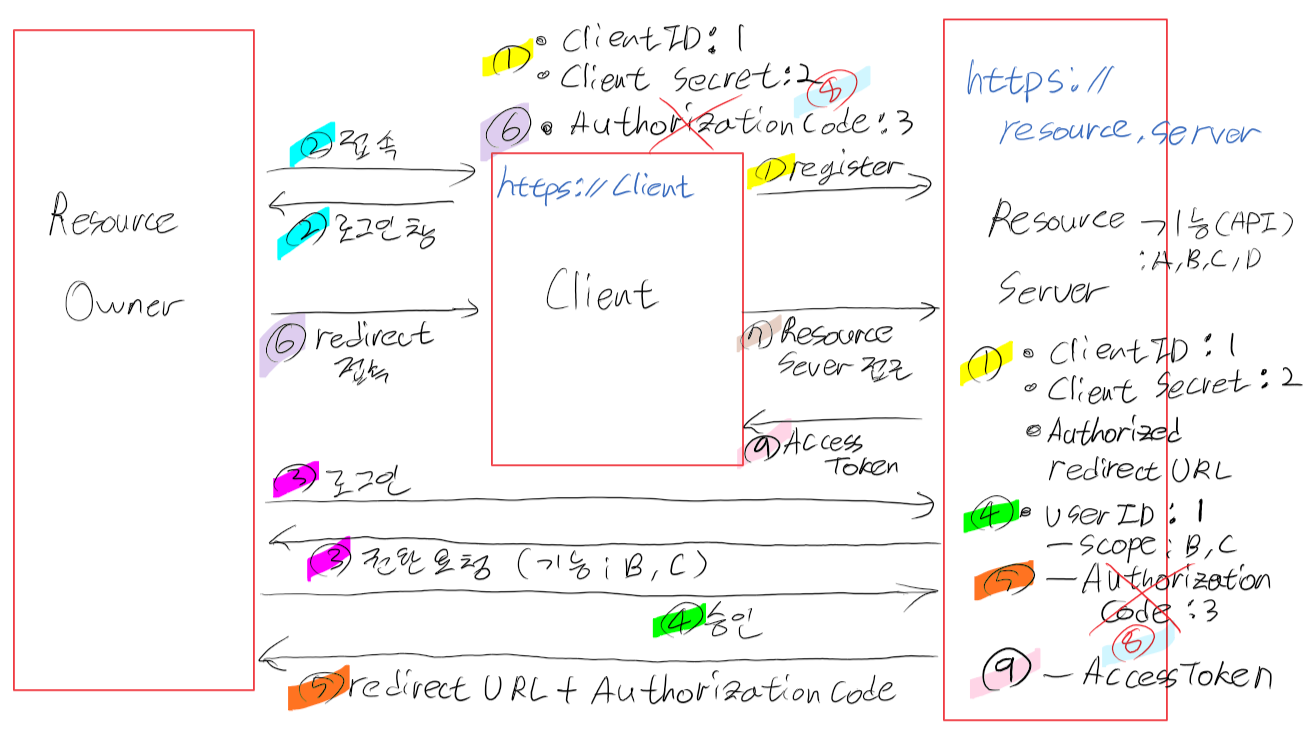 Resource
Owner
② 접속
② 로그인창
⑥ redirect
접속
① • ClientID : 1
• Client Secret : 2
⑧
⑥ • Authorization Code : 3
https://Client
Client
① register
⑦ Resource
Sever 접근
⑨ Access
Token
③ 로그인
③ 권한 요청 (기능 ; B, C)
④ 승인
⑤ redirect URL + Authorization Code
https://
resource.server
Resource
Server
ㄱ기능(API)
: A, B, C, D
① • ClientID : 1
• Client Secret : 2
• Authorized
redirect URL
④ • userID : 1
– scope : B, C
⑤ – Authorization
Code : 3
⑧
⑨ – AccessToken